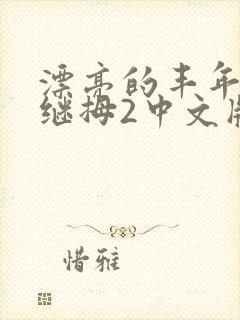 漂亮的丰年
继拇2中文版
惜雅